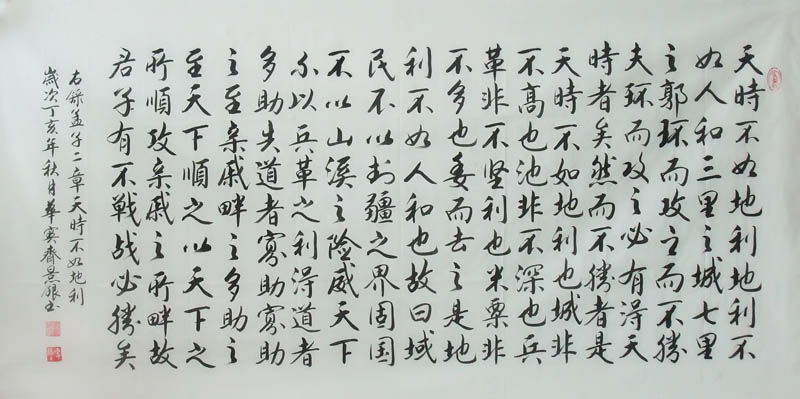 天時不如地利地利不
如人和三里之城七里
之郭环而攻之而不勝
夫环而攻之必有得天
時者矣然而不勝者是
天時不如地利也城非
不高也池非不深也兵
革非不坚利也米粟非
不多也委而去之是地
利不如人和也故曰域
民不以封疆之界固国
不以山溪之险威天下
不以兵革之利得道者
多助失道者寡助寡助
之至亲戚畔之多助之
至天下順之以天下之
所順攻亲戚之所畔故
君子有不戰战必勝矣
右錄孟子二章天時不如地利
歲次丁亥年秋月華寶齋景银书